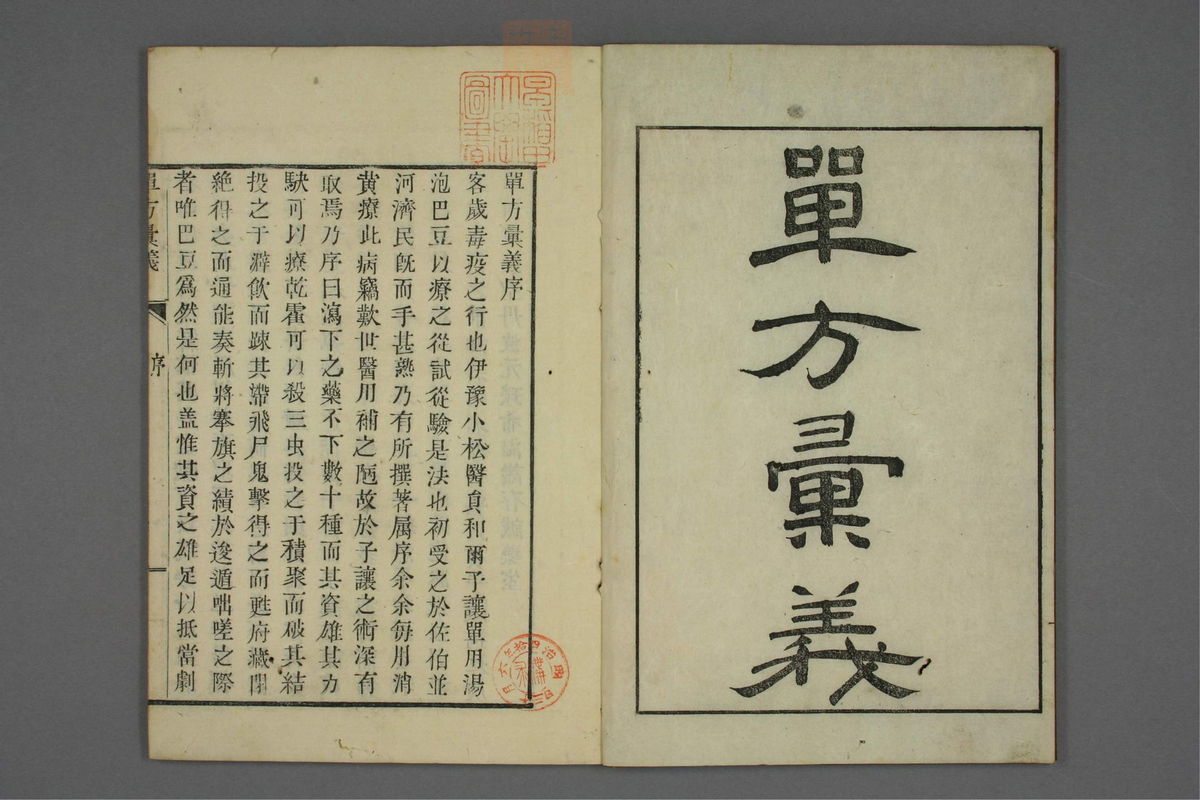 單方彙義
單方彙義序
客歲毒疫之行也伊豫小松醫員和爾子讓單用湯
泡巴豆以療之從試從驗是法也初受之於佐伯並
河濟民既而手甚熟乃有所撰著属序余余每用消
黄療此病竊歎世醫用補之陋故於子讓之術深有
取焉乃序曰瀉下之藥不下數十種而其資雄其力
駃可以療乾霍可以殺三虫投之于積聚而破其結
投之于癖飲而踈其滯飛尸鬼擊得之而甦府藏閉
絶得之而通能奏斬將搴旗之績於逡遁咄嗟之際
者唯巴豆爲然是何也盖惟其資之雄足以抵當劇
單方彙義
序